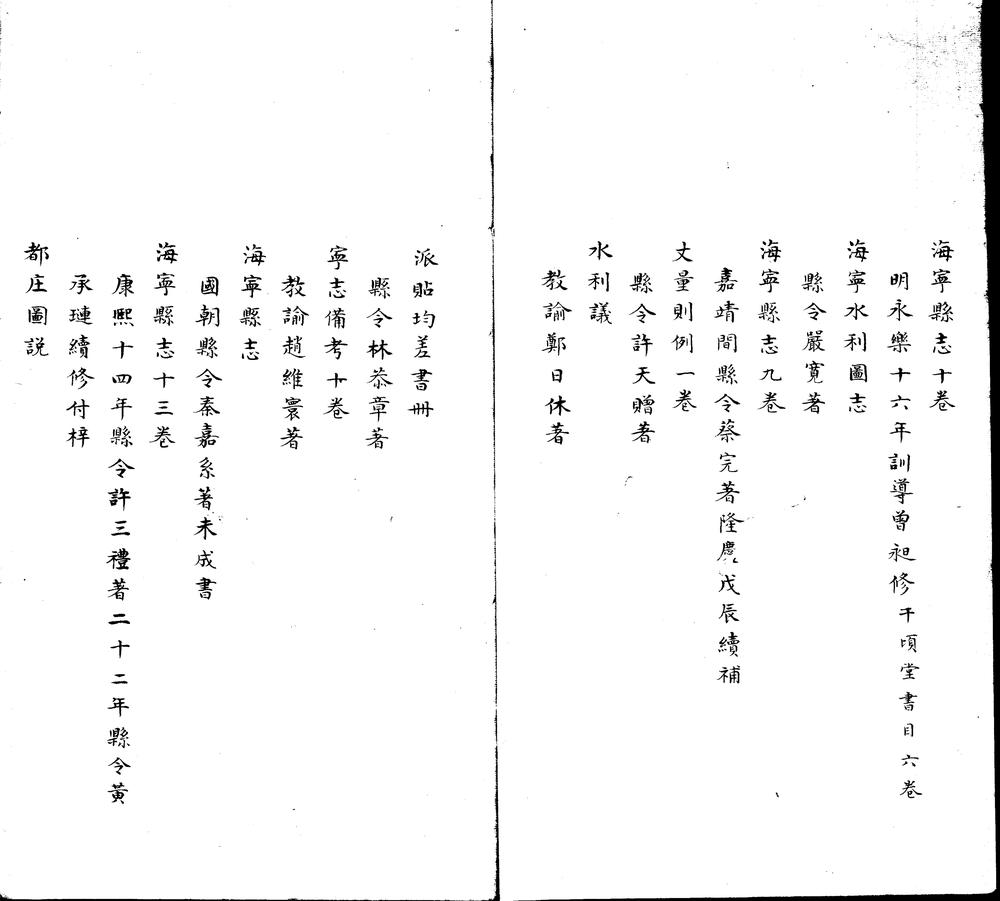 海寧縣志十卷
明永樂十六年訓導曾昶修千頃堂書目六卷
海寧水利圖志
縣令嚴寬著
海寧縣志九卷
嘉靖間縣令蔡完著隆慶戊辰續補
丈量則例一卷
縣令許天贈著
水利議
教諭鄭日休著
派貼均差書冊
縣令林恭章著
寧志備考十卷
教諭趙維寰著
海寧縣志
國朝縣令秦嘉系著未成書
海寧縣志十三卷
康熙十四年縣令許三禮著二十二年縣令黃
承璉續修付梓
都庄圖説